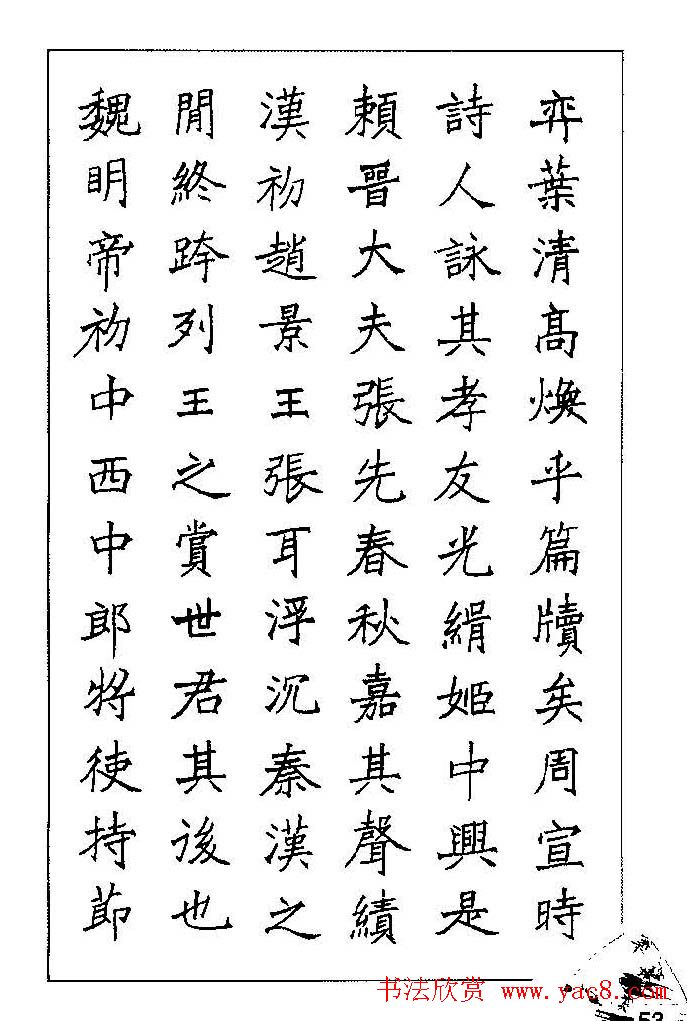 弈葉清高煥乎篇牘矣周宣時
詩人詠其孝友光緝姬中興是
賴晉大夫張先春秋嘉其聲績
漢初趙景王張耳浮沉秦漢之
閒終跨列王之賞世君其後也
魏明帝初中西中郎將使持節
书法欣赏 www.yac8.com
53